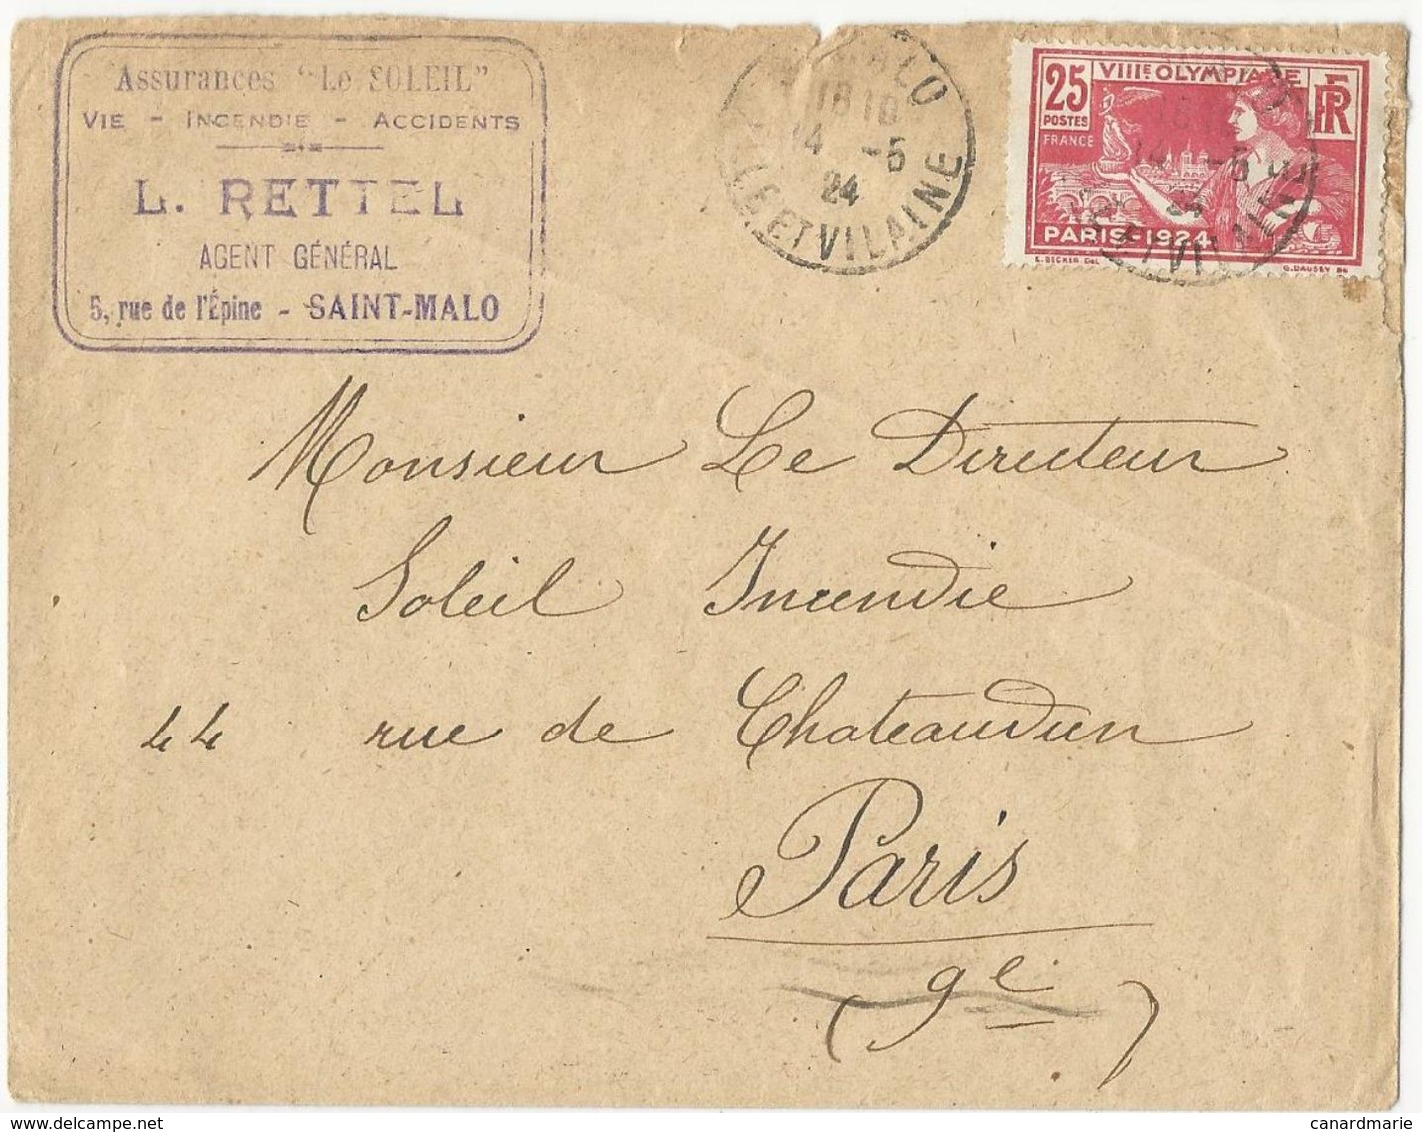 Assurances "Le SOLEIL"
VIE - INCENDIE - ACCIDENTS
L. RETTEL
AGENT GÉNÉRAL
5, rue de l'Épine - SAINT-MALO
18 10
-5
24
ET VILAINE
25
POSTES
FRANCE
VIIIE OLYMPIADE
RF
PARIS-1924
L. BECKER. Del.
G. DAUSSY
Monsieur Le Directeur
Soleil Incendie
44 rue de Chateaudun
Paris
(9e)
canardmarie